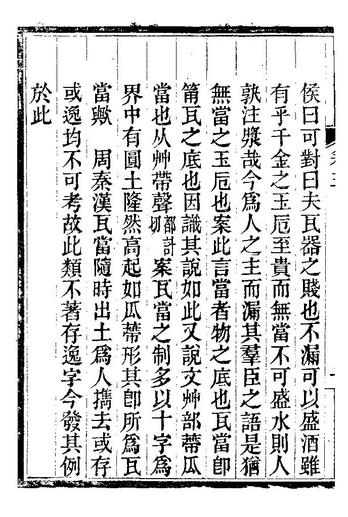 侯曰可對曰夫瓦器之賤也不漏可以盛酒雖
有乎千金之玉卮至貴而無當不可盛水則人
孰注漿哉今為人之主而漏其羣臣之語是猶
無當之玉卮也案此言當者物之底也瓦當卽
筩瓦之底也因識其說如此又說文艸部蔕瓜
當也从艸帶聲都計切案瓦當之制多以十字為
界中有圓土隆然高起如瓜蔕形其卽所為瓦
當歟　周秦漢瓦當隨時出土為人攜去或存
或逸均不可考故此類不著存逸字今發其例
於此